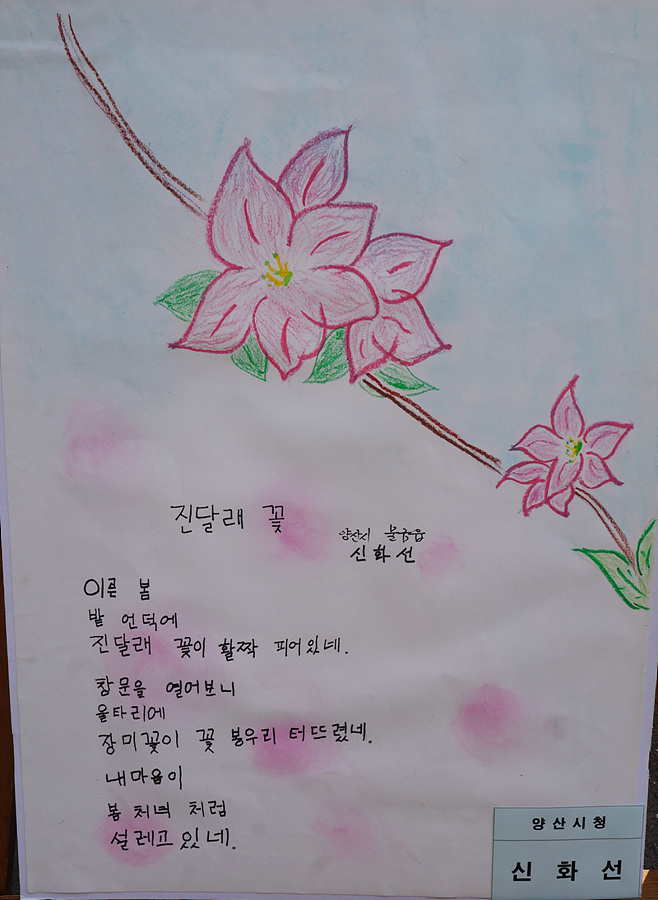 진달래 꽃
양산시 물금읍
신화선
이른 봄
밭 언덕에
진달래 꽃이 활짝 피어있네.
창문을 열어보니
울타리에
장미꽃이 꽃 봉우리 터뜨렸네.
내마음이
봄 처녀 처럼
설레고 있네.
양산시청
신 화 선